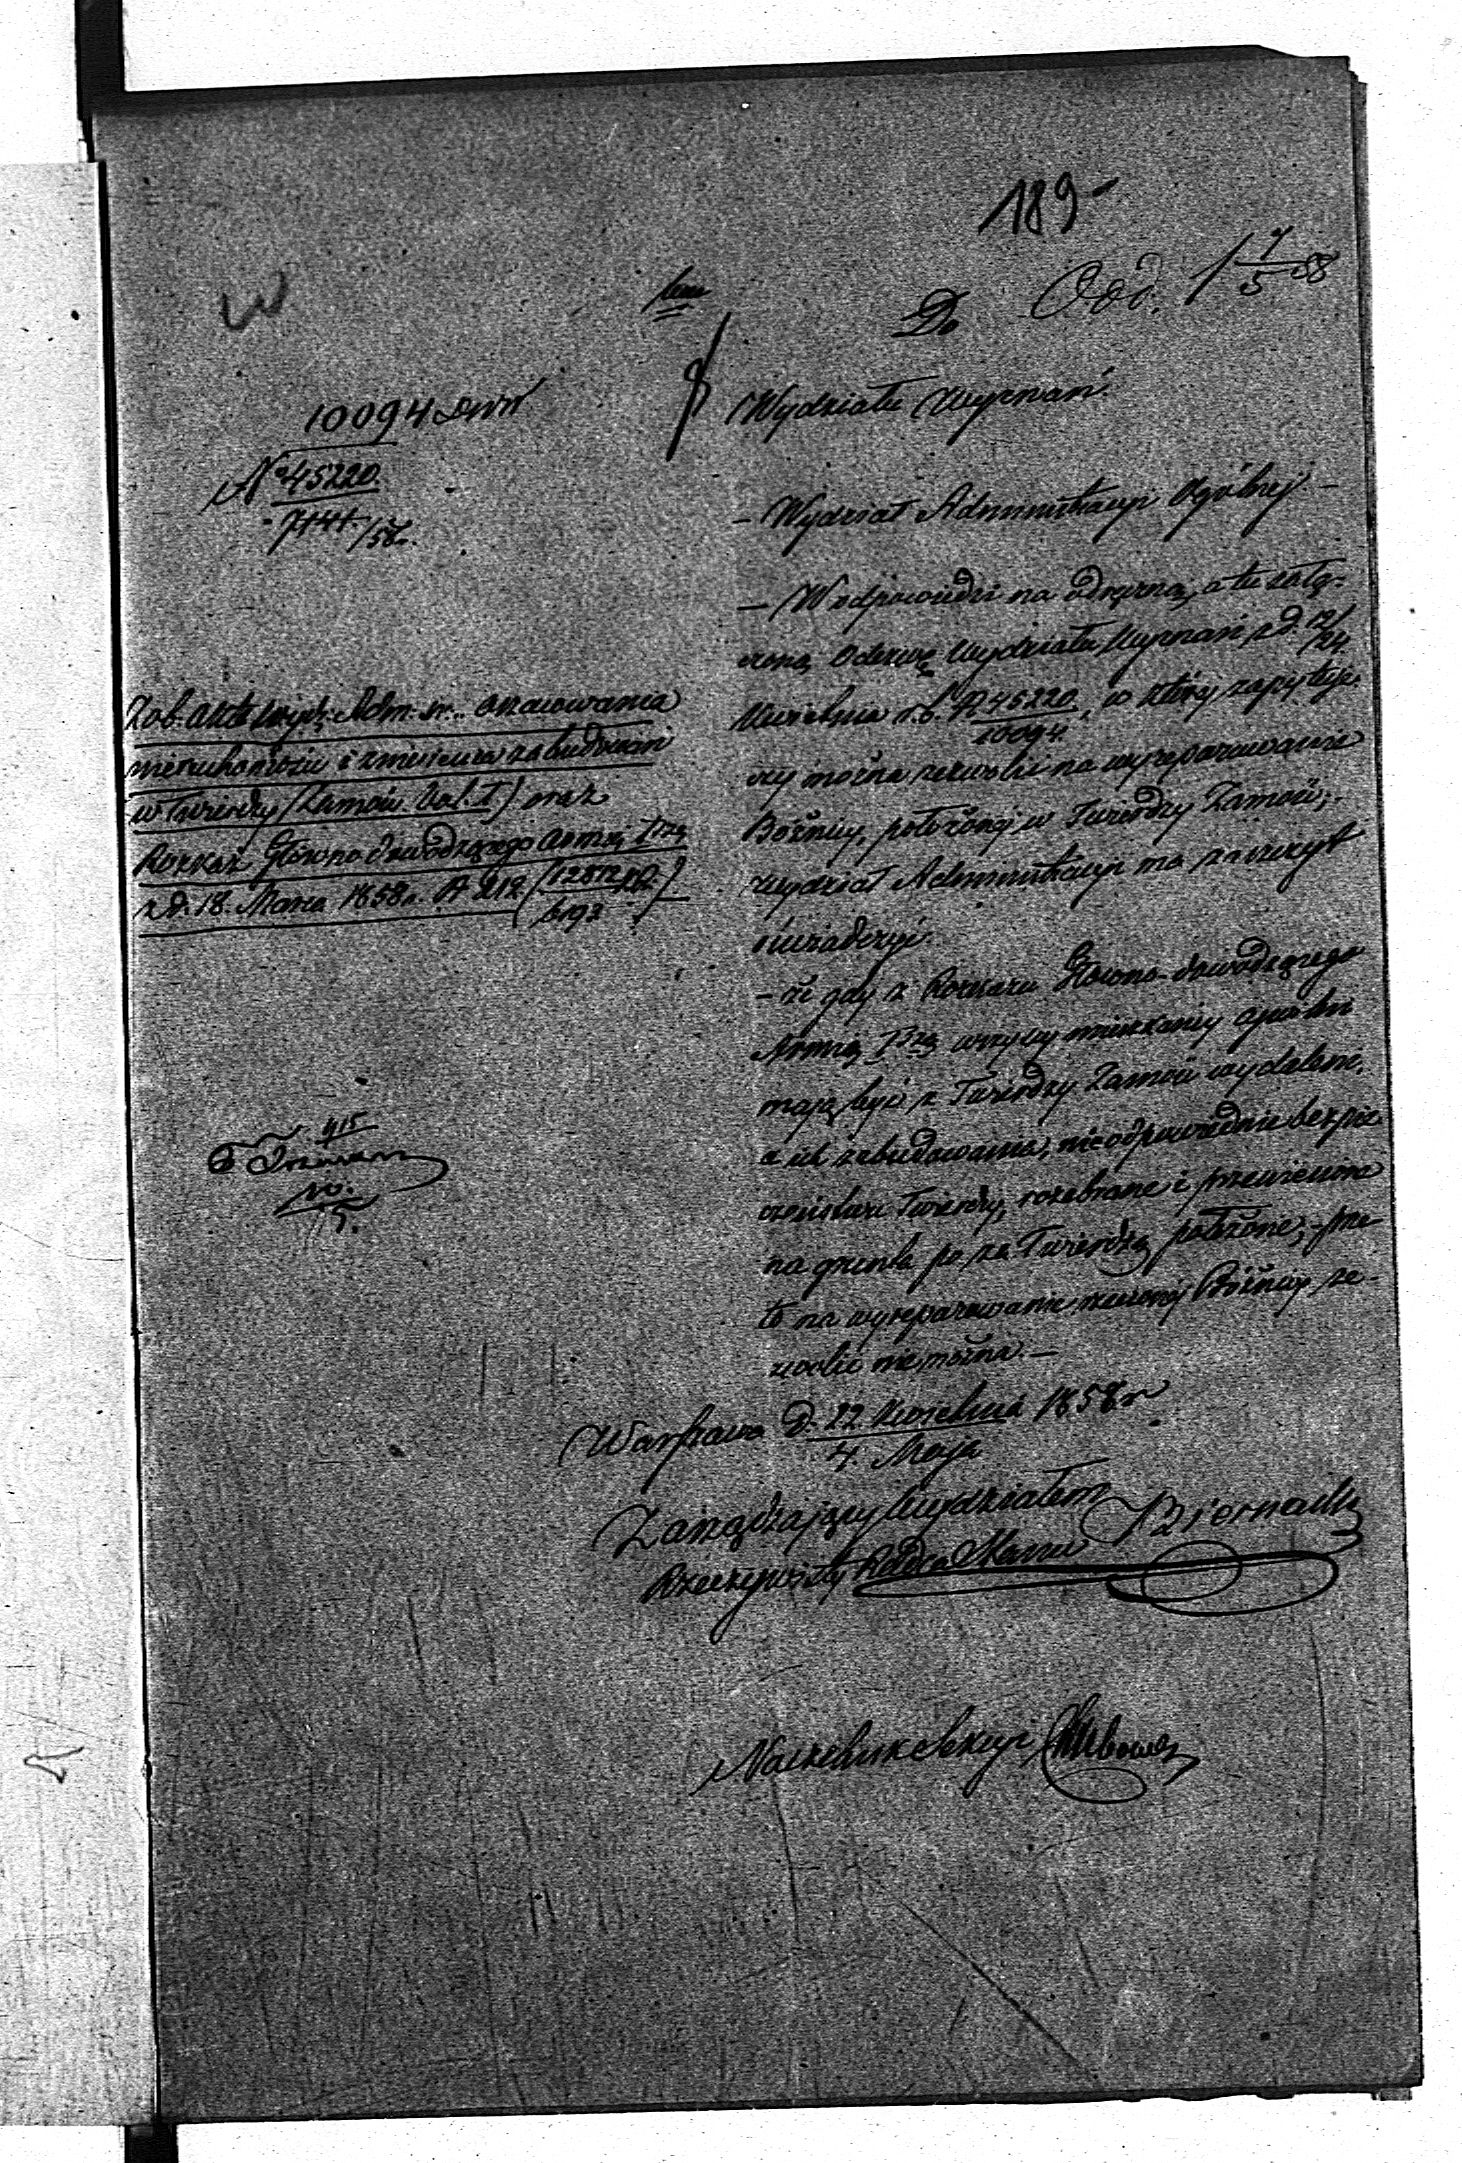 189
Odd. 1 7/5 58
Do
Wydziału Wyznań.
10094
№ 45220
7141/58r.
– Wydział Administracyi Ogólnej –
– W odpowiedzi na odręczną, a tu załą-
czoną Odezwę Wydziału Wyznań z d. 12/24
Kwietnia r. b. № 45220/10094, w której zapytuje
czy można zezwolić na wyreparowanie
Bóżnicy, położonej w Twierdzy Zamość;
Wydział Administracyi ma zaszczyt
oświadczyć:
– że gdy z Rozkazu Główno-dowodzącego
Armią 1szą wszyscy mieszkańcy
mają być z Twierdzy Zamość wydaleni,
a ich zabudowania, nieodpowiednie bezpie-
czeństwu Twierdzy, rozebrane i przeniesione
na grunta po za Twierdzą położone; – prze-
to na wyreparowanie rzeczonej Bóżnicy ze-
zwolić nie można. –
Zob. Akta Wydz. Adm. oszacowania
nieruchomości i zniesienia zabudowań
w Twierdzy (Zamość Vol. I) oraz
Rozkaz Główno dowodzącego Armią 1szą
z d. 18. Marca 1858 r. № 212
Warszawa d. 22 Kwietnia 1858 r
4. Maja
Zarządzający Wydziałem
Rzeczywisty Radca Stanu Biernacki
Naczelnik Sekcyi